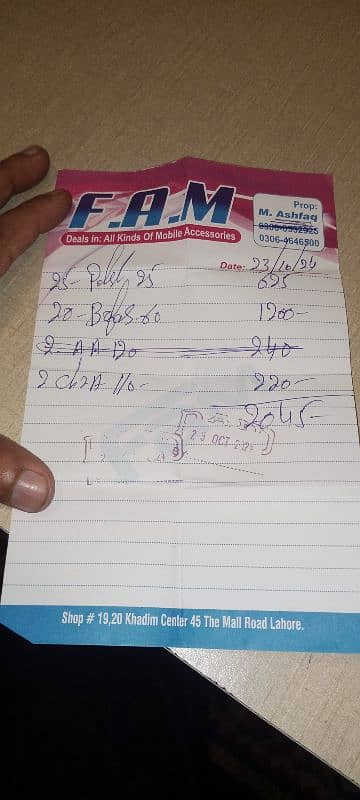 F.A.M
Deals in: All Kinds Of Mobile Accessories
Prop:
M. Ashfaq
0306-4646300
Date: 23/10/24
25- 25 625
20- 60 1200-
2. AA 120 240
2 110- 220-
2045-
OCT
Shop # 19,20 Khadim Center 45 The Mall Road Lahore.